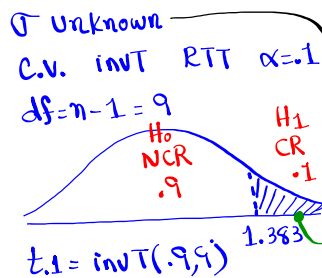 σ unknown
C.V. invT RTT α=.1
df=n-1 = 9
H₀
NCR
.9
H₁
CR
.1
1.383
t.1 = invT(.9,9)